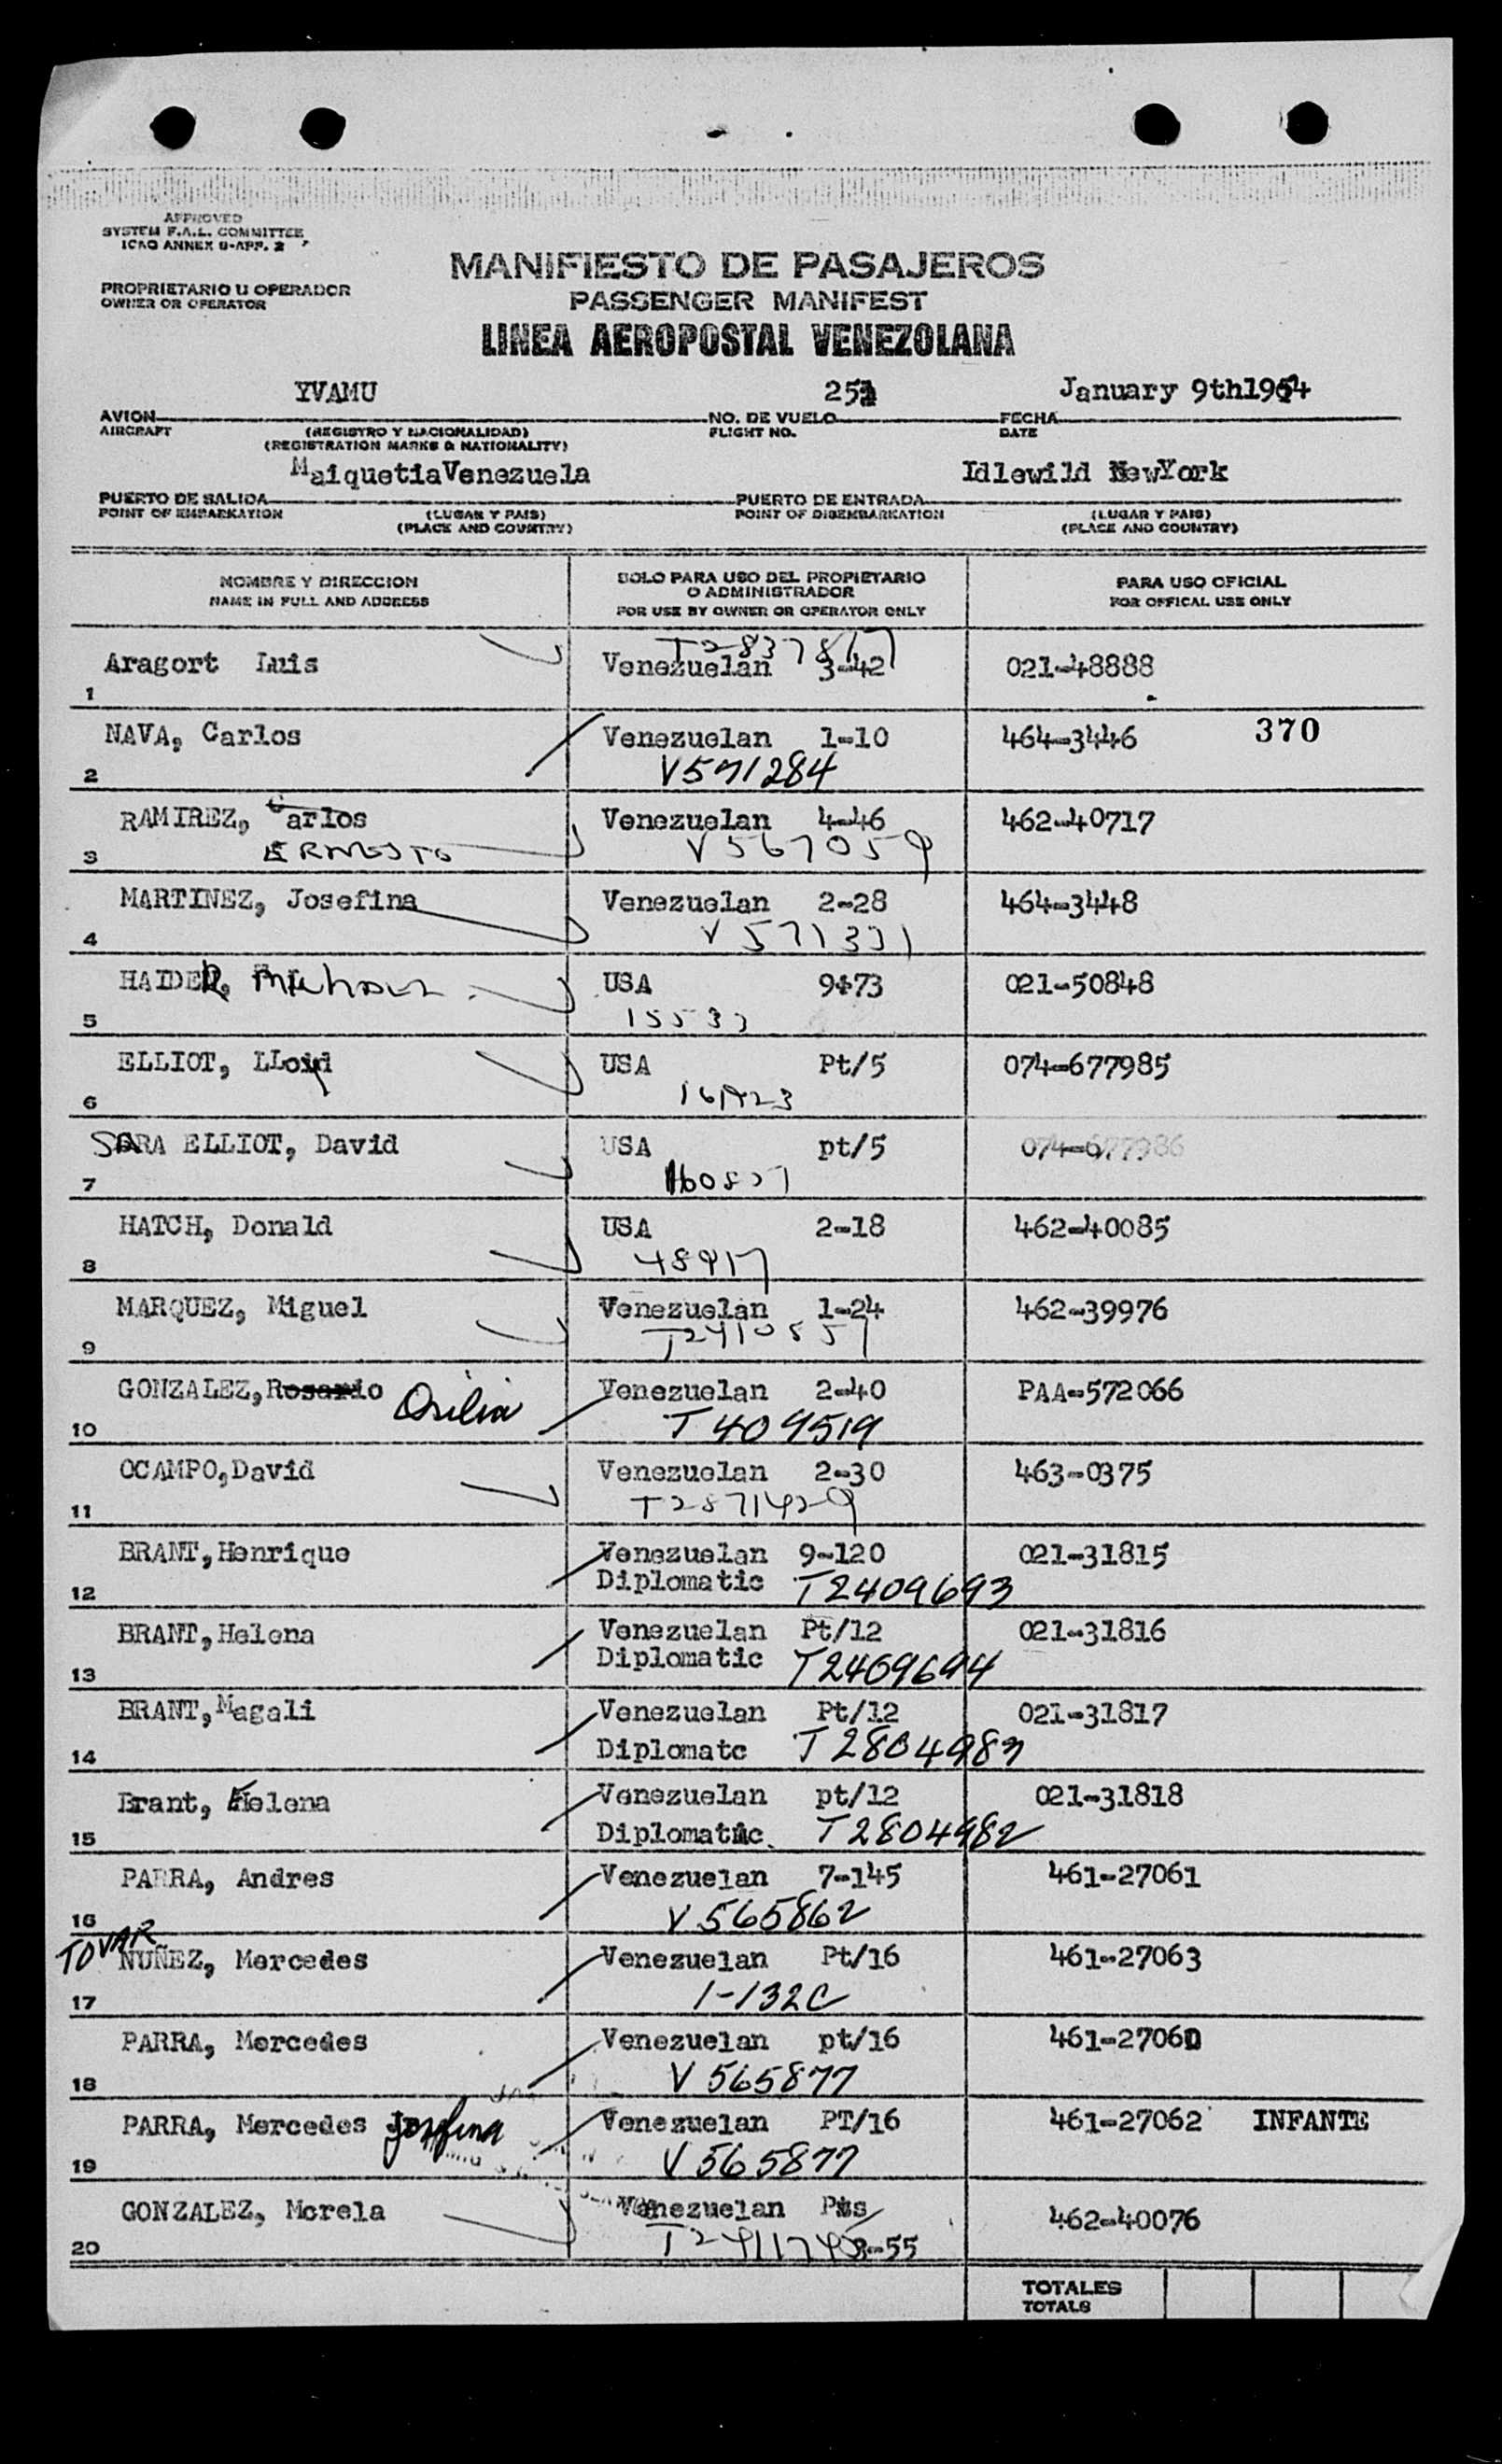 APPROVED
SYSTEM F.A.L. COMMITTEE
ICAO ANNEX 9-APP. 2
MANIFIESTO DE PASAJEROS
PROPRIETARIO U OPERADOR
OWNER OR OPERATOR
PASSENGER MANIFEST
LINEA AEROPOSTAL VENEZOLANA
YVAMU January 9th1954
AVION NO. DE VUELO FECHA
AIRCRAFT (REGISTRO Y NACIONALIDAD) FLIGHT NO. DATE
(REGISTRATION MARKS & NATIONALITY)
MaiquetiaVenezuela Idlewild NewYork
PUERTO DE SALIDA PUERTO DE ENTRADA
POINT OF EMBARKATION (LUGAR Y PAIS) POINT OF DISEMBARKATION (LUGAR Y PAIS)
(PLACE AND COUNTRY) (PLACE AND COUNTRY)
NOMBRE Y DIRECCION SOLO PARA USO DEL PROPIETARIO O ADMINISTRADOR PARA USO OFICIAL
NAME IN FULL AND ADDRESS FOR USE BY OWNER OR OPERATOR ONLY FOR OFFICAL USE ONLY
T2837817
Aragort Luis Venezuelan 3-42 021-48888
1
NAVA, Carlos Venezuelan 1-10 464-3446 370
2 V571284
RAMIREZ, Carlos Venezuelan 4-46 462-40717
3 ERNESTO V567059
MARTINEZ, Josefina Venezuelan 2-28 464-3448
4 V571331
HAIDER, USA 9-73 021-50848
5 15533
ELLIOT, LLoyd USA Pt/5 074-677985
6
SARA ELLIOT, David USA pt/5 074-677986
7 160837
HATCH, Donald USA 2-18 462-40085
8 48917
MARQUEZ, Miguel Venezuelan 1-24 462-39976
9 T2410857
GONZALEZ,Rosario Venezuelan 2-40 PAA-572066
10 T409519
OCAMPO,David Venezuelan 2-30 463-0375
11 T2871429
BRANT,Henrique Venezuelan 9-120 021-31815
12 Diplomatic T2409693
BRANT,Helena Venezuelan Pt/12 021-31816
13 Diplomatic T2409694
BRANT,Magali Venezuelan Pt/12 021-31817
14 Diplomatc T2804983
Brant, Helena Venezuelan pt/12 021-31818
15 Diplomatic T2804982
PARRA, Andres Venezuelan 7-145 461-27061
16 V565862
TOVAR
NUÑEZ, Mercedes Venezuelan Pt/16 461-27063
17 1-132C
PARRA, Mercedes Venezuelan pt/16 461-27060
18 V565877
PARRA, Mercedes Josefina Venezuelan PT/16 461-27062 INFANTE
19 V565877
GONZALEZ, Morela Venezuelan 462-40076
20 3-55
TOTALES
TOTALS